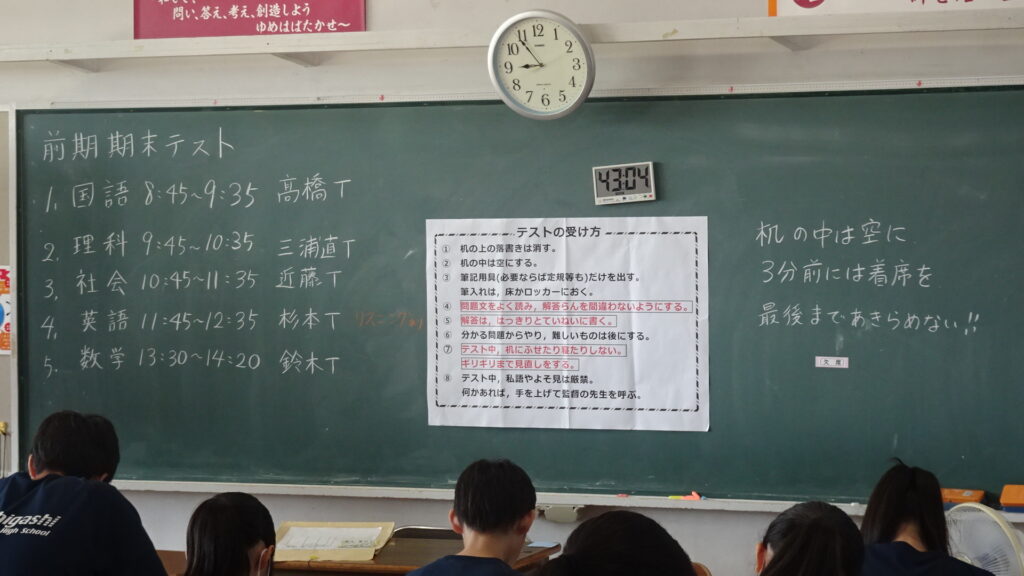 問い、答え、考え、創造しよう
ゆめはばたかせ~
前期期末テスト
1. 国語 8:45~9:35 高橋T
2. 理科 9:45~10:35 三浦直T
3. 社会 10:45~11:35 近藤T
4. 英語 11:45~12:35 杉本T
5. 数学 13:30~14:20 鈴木T
12
1
2
3
4
5
6
7
8
9
10
43:04
テストの受け方
① 机の上の落書きは消す。
② 机の中は空にする。
③ 筆記用具(必要ならば定規等も)だけを出す。
筆入れは,床かロッカーにおく。
④ 問題文をよく読み,解答らんを間違わないようにする。
⑤ 解答は,はっきりとていねいに書く。
⑥ 分かる問題からやり,難しいものは後にする。
⑦ テスト中,机にふせたり寝たりしない。
ギリギリまで見直しをする。
⑧ テスト中,私語やよそ見は厳禁。
何かあれば,手を上げて監督の先生を呼ぶ。
机の中は空に
3分前には着席を
最後まであきらめない!!
higashi
High School